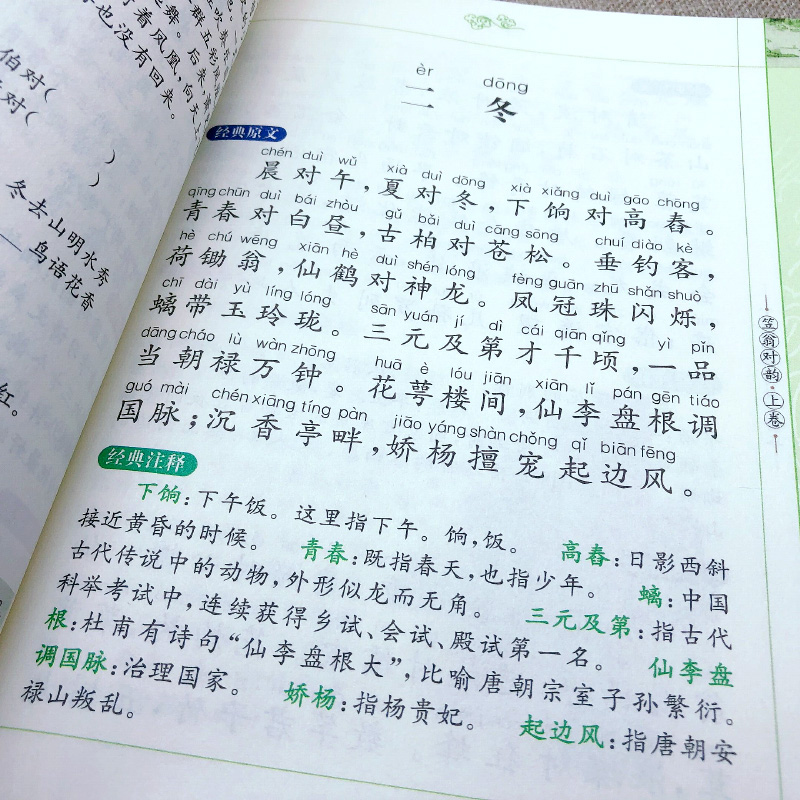 èr dōng
二 冬
经典原文
chén duì wǔ xià duì dōng xià xiǎng duì gāo chōng
晨对午，夏对冬，下饷对高舂。
qīng chūn duì bái zhòu gǔ bǎi duì cāng sōng chuí diào kè
青春对白昼，古柏对苍松。垂钓客，
hè chú wēng xiān hè duì shén lóng fèng guān zhū shǎn shuò
荷锄翁，仙鹤对神龙。凤冠珠闪烁，
chī dài yù líng lóng sān yuán jí dì cái qiān qǐng yì pǐn
螭带玉玲珑。三元及第才千顷，一品
dāng cháo lù wàn zhōng huā è lóu jiān xiān lǐ pán gēn tiáo
当朝禄万钟。花萼楼间，仙李盘根调
guó mài chén xiāng tíng pàn jiāo yáng shàn chǒng qǐ biān fēng
国脉；沉香亭畔，娇杨擅宠起边风。
经典注释
下饷：下午饭。这里指下午。饷，饭。 高舂：日影西斜
接近黄昏的时候。 青春：既指春天，也指少年。 螭：中国
古代传说中的动物，外形似龙而无角。 三元及第：指古代
科举考试中，连续获得乡试、会试、殿试第一名。 仙李盘
根：杜甫有诗句“仙李盘根大”，比喻唐朝宗室子孙繁衍。
调国脉：治理国家。 娇杨：指杨贵妃。 起边风：指唐朝安
禄山叛乱。
笠翁对韵·上卷
着凤凰，向天上
也没有回来。
伯对（
对（
）
）
冬去山明水秀
——鸟语花香
红。